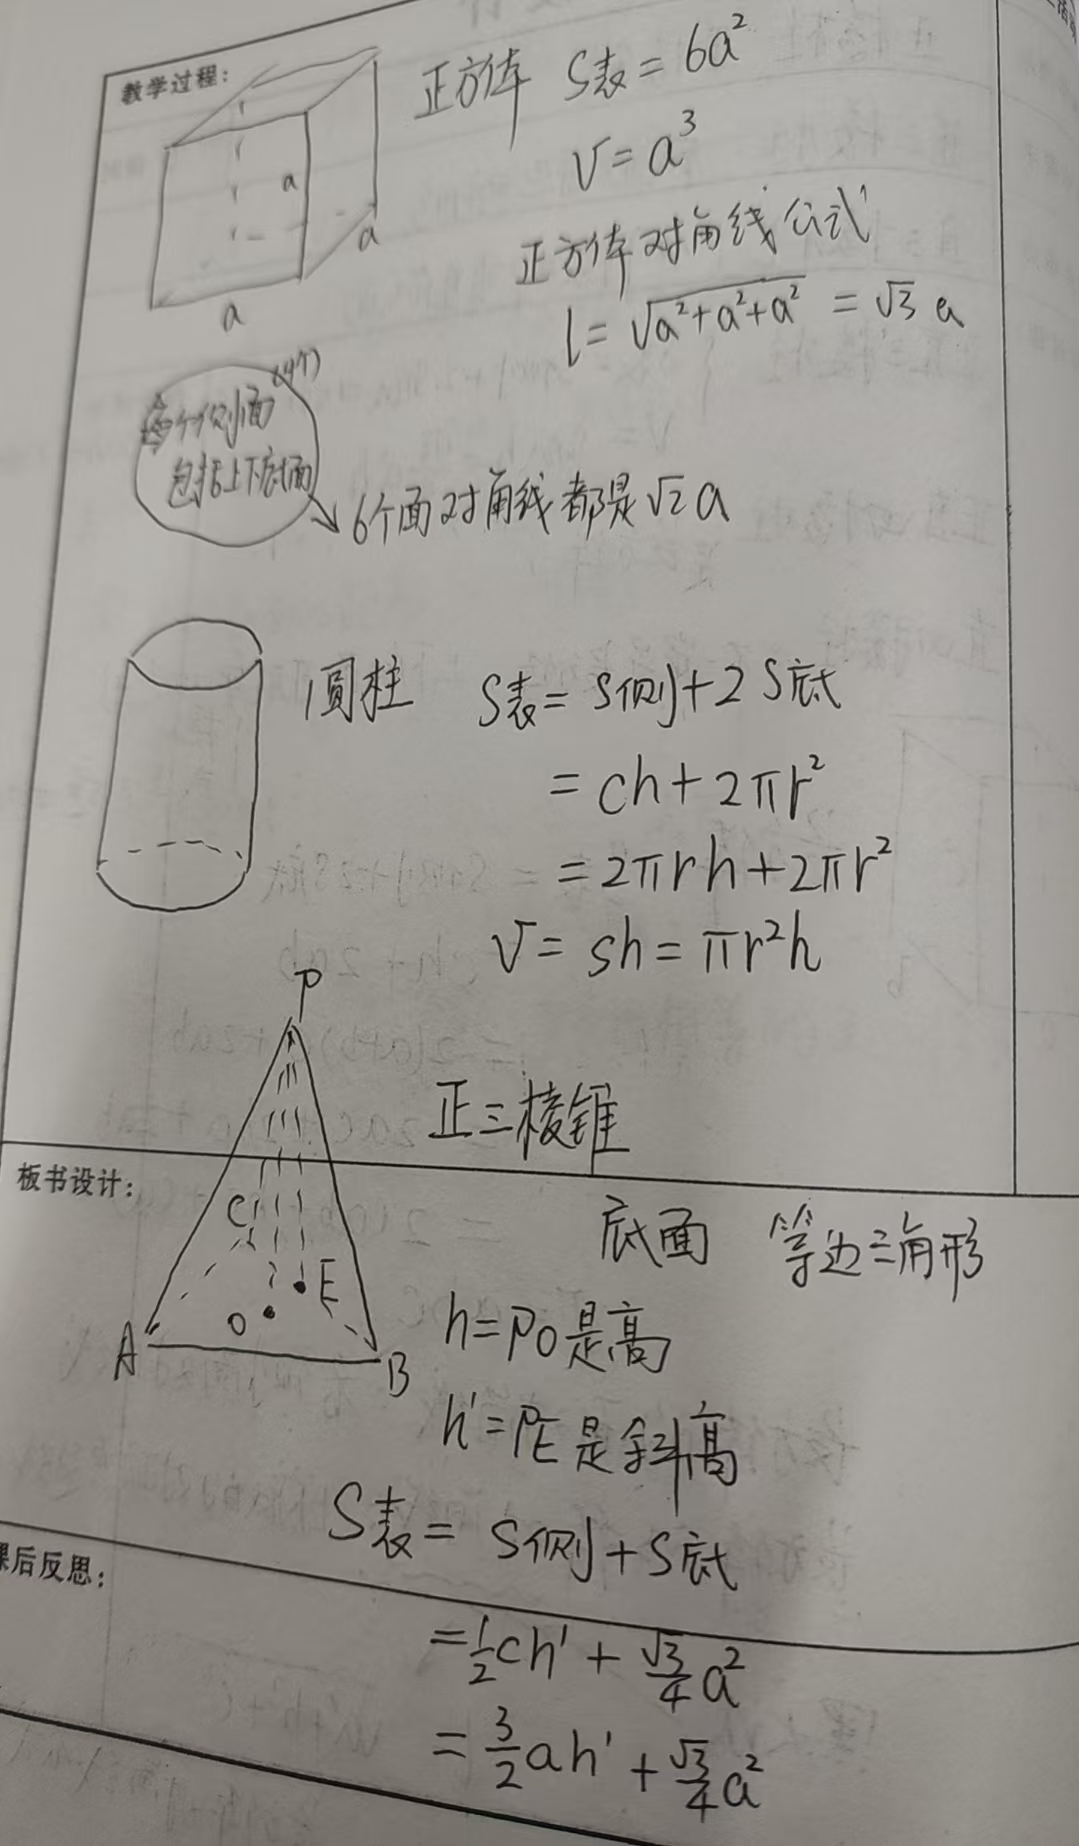 教学过程:
正方体 S表 = 6a²
V = a³
a
a
a
正方体对角线公式
l = √(a²+a²+a²) = √3 a
每个侧面(4个)
包括上下底面
6个面对角线都是√2 a
圆柱 S表 = S侧 + 2S底
= ch + 2πr²
= 2πrh + 2πr²
V = sh = πr²h
P
正三棱锥
板书设计:
C
底面 等边三角形
E
O
A
B
h = PO是高
h' = PE是斜高
S表 = S侧 + S底
课后反思:
= 1/2 ch' + √3/4 a²
= 3/2 ah' + √3/4 a²